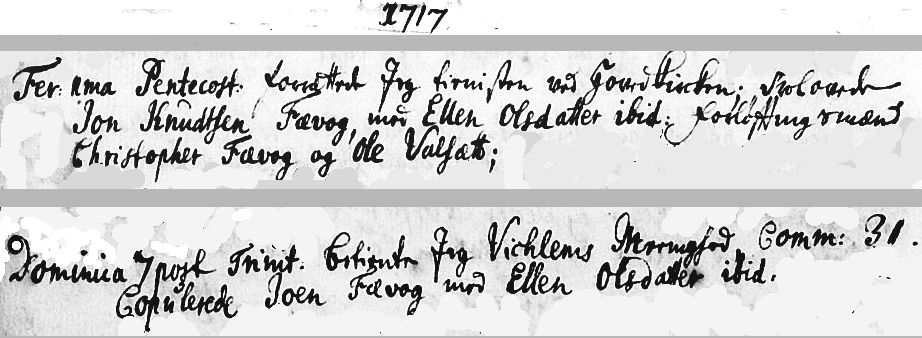 1717
Fer: 1ma Pentecost. forrættede Jeg tienisten ved Hovedkircken. Trolovede
Jon Knudtsen Fævog, med Ellen Olsdatter ibid: forløftningsmænd
Christopher Fævog og Ole Valsætt;
Dominica 7 post Trinit. betiente Jeg Vichlems Meenighed, Comm: 31.
Copulerede Joen Fævog med Ellen Olsdatter ibid.